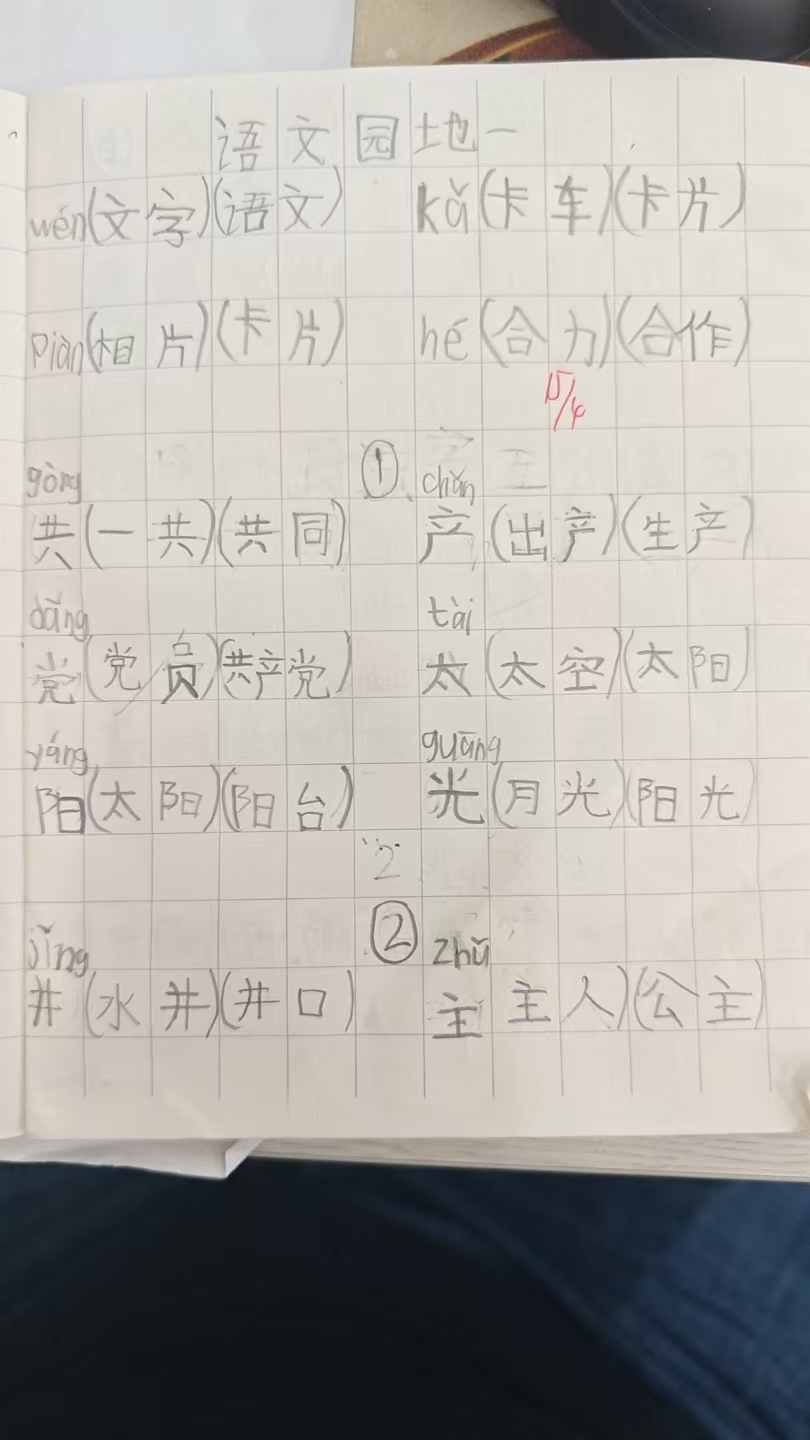 语文园地一
wén(文字)(语文) kǎ(卡车)(卡片)
piàn(相片)(卡片) hé(合力)(合作)
15/4
gòng ① chǎn
共(一共)(共同) 产(出产)(生产)
dǎng tài
党(党员)(共产党) 太(太空)(太阳)
yáng guāng
阳(太阳)(阳台) 光(月光)(阳光)
2
jǐng ② zhǔ
井(水井)(井口) 主 主人)(公主)